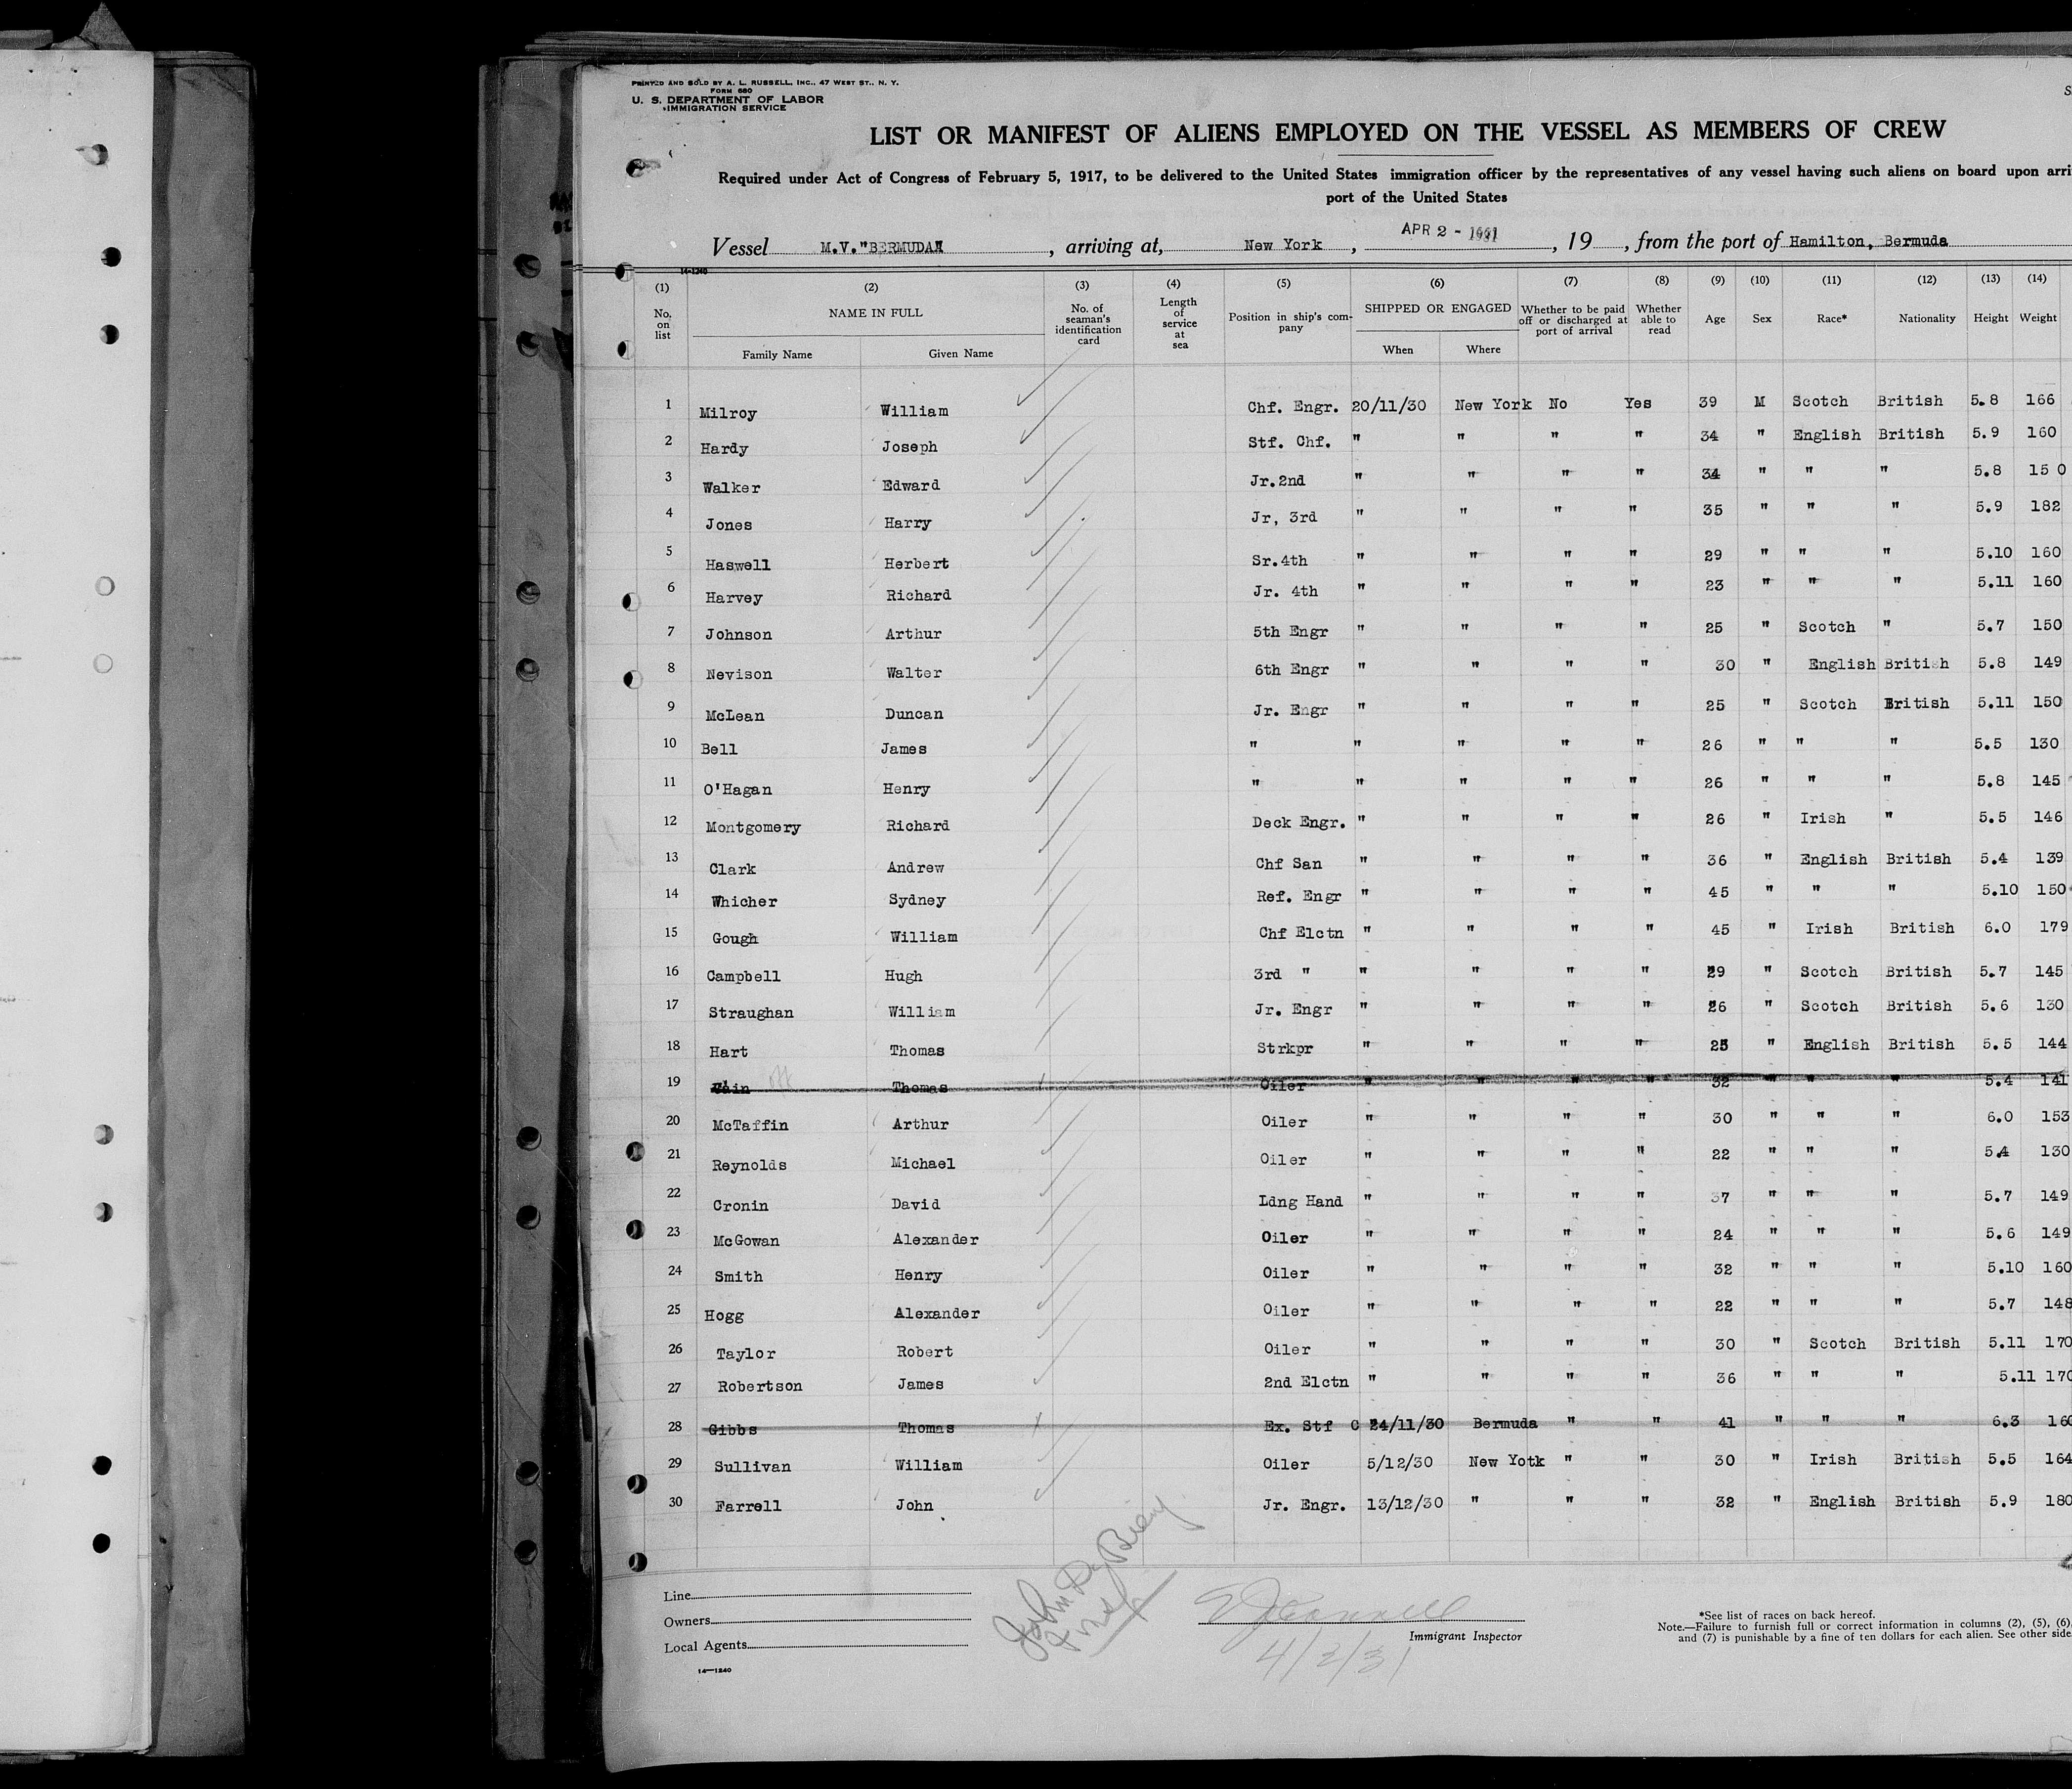 PRINTED AND SOLD BY A. L. RUSSELL, INC., 47 WEST ST., N. Y.
FORM 680
U. S. DEPARTMENT OF LABOR
IMMIGRATION SERVICE
LIST OR MANIFEST OF ALIENS EMPLOYED ON THE VESSEL AS MEMBERS OF CREW
Required under Act of Congress of February 5, 1917, to be delivered to the United States immigration officer by the representatives of any vessel having such aliens on board upon arri
port of the United States
Vessel M.V."BERMUDA", arriving at, New York, APR 2 - 1931, 19 , from the port of Hamilton, Bermuda
14-1240
(1) (2) (3) (4) (5) (6) (7) (8) (9) (10) (11) (12) (13) (14)
No. on list NAME IN FULL Family Name Given Name No. of seaman's identification card Length of service at sea Position in ship's company SHIPPED OR ENGAGED When Where Whether to be paid off or discharged at port of arrival Whether able to read Age Sex Race* Nationality Height Weight
1 Milroy William Chf. Engr. 20/11/30 New York No Yes 39 M Scotch British 5.8 166
2 Hardy Joseph Stf. Chf. " " " " 34 " English British 5.9 160
3 Walker Edward Jr.2nd " " " " 34 " " " 5.8 15 0
4 Jones Harry Jr, 3rd " " " " 35 " " " 5.9 182
5 Haswell Herbert Sr.4th " " " " 29 " " " 5.10 160
6 Harvey Richard Jr. 4th " " " " 23 " " " 5.11 160
7 Johnson Arthur 5th Engr " " " " 25 " Scotch " 5.7 150
8 Nevison Walter 6th Engr " " " " 30 " English British 5.8 149
9 McLean Duncan Jr. Engr " " " " 25 " Scotch British 5.11 150
10 Bell James " " " " " 26 " " " 5.5 130
11 O'Hagan Henry " " " " " 26 " " " 5.8 145
12 Montgomery Richard Deck Engr. " " " " 26 " Irish " 5.5 146
13 Clark Andrew Chf San " " " " 36 " English British 5.4 139
14 Whicher Sydney Ref. Engr " " " " 45 " " " 5.10 150
15 Gough William Chf Elctn " " " " 45 " Irish British 6.0 179
16 Campbell Hugh 3rd " " " " " 29 " Scotch British 5.7 145
17 Straughan William Jr. Engr " " " " 26 " Scotch British 5.6 130
18 Hart Thomas Strkpr " " " " 25 " English British 5.5 144
19 off Thomas Oiler " " " " 32 " " " 5.4 141
20 McTaffin Arthur Oiler " " " " 30 " " " 6.0 153
21 Reynolds Michael Oiler " " " " 22 " " " 5.4 130
22 Cronin David Ldng Hand " " " " 37 " " " 5.7 149
23 McGowan Alexander Oiler " " " " 24 " " " 5.6 149
24 Smith Henry Oiler " " " " 32 " " " 5.10 160
25 Hogg Alexander Oiler " " " " 22 " " " 5.7 148
26 Taylor Robert Oiler " " " " 30 " Scotch British 5.11 170
27 Robertson James 2nd Elctn " " " " 36 " " " 5.11 170
28 Gibbs Thomas Ex. Stf C 24/11/30 Bermuda " " 41 " " " 6.3 160
29 Sullivan William Oiler 5/12/30 New Yotk " " 30 " Irish British 5.5 164
30 Farrell John Jr. Engr. 13/12/30 " " " 32 " English British 5.9 180
Line
Owners
Local Agents
14-1240
Immigrant Inspector
4/2/31
*See list of races on back hereof.
Note.—Failure to furnish full or correct information in columns (2), (5), (6),
and (7) is punishable by a fine of ten dollars for each alien. See other side